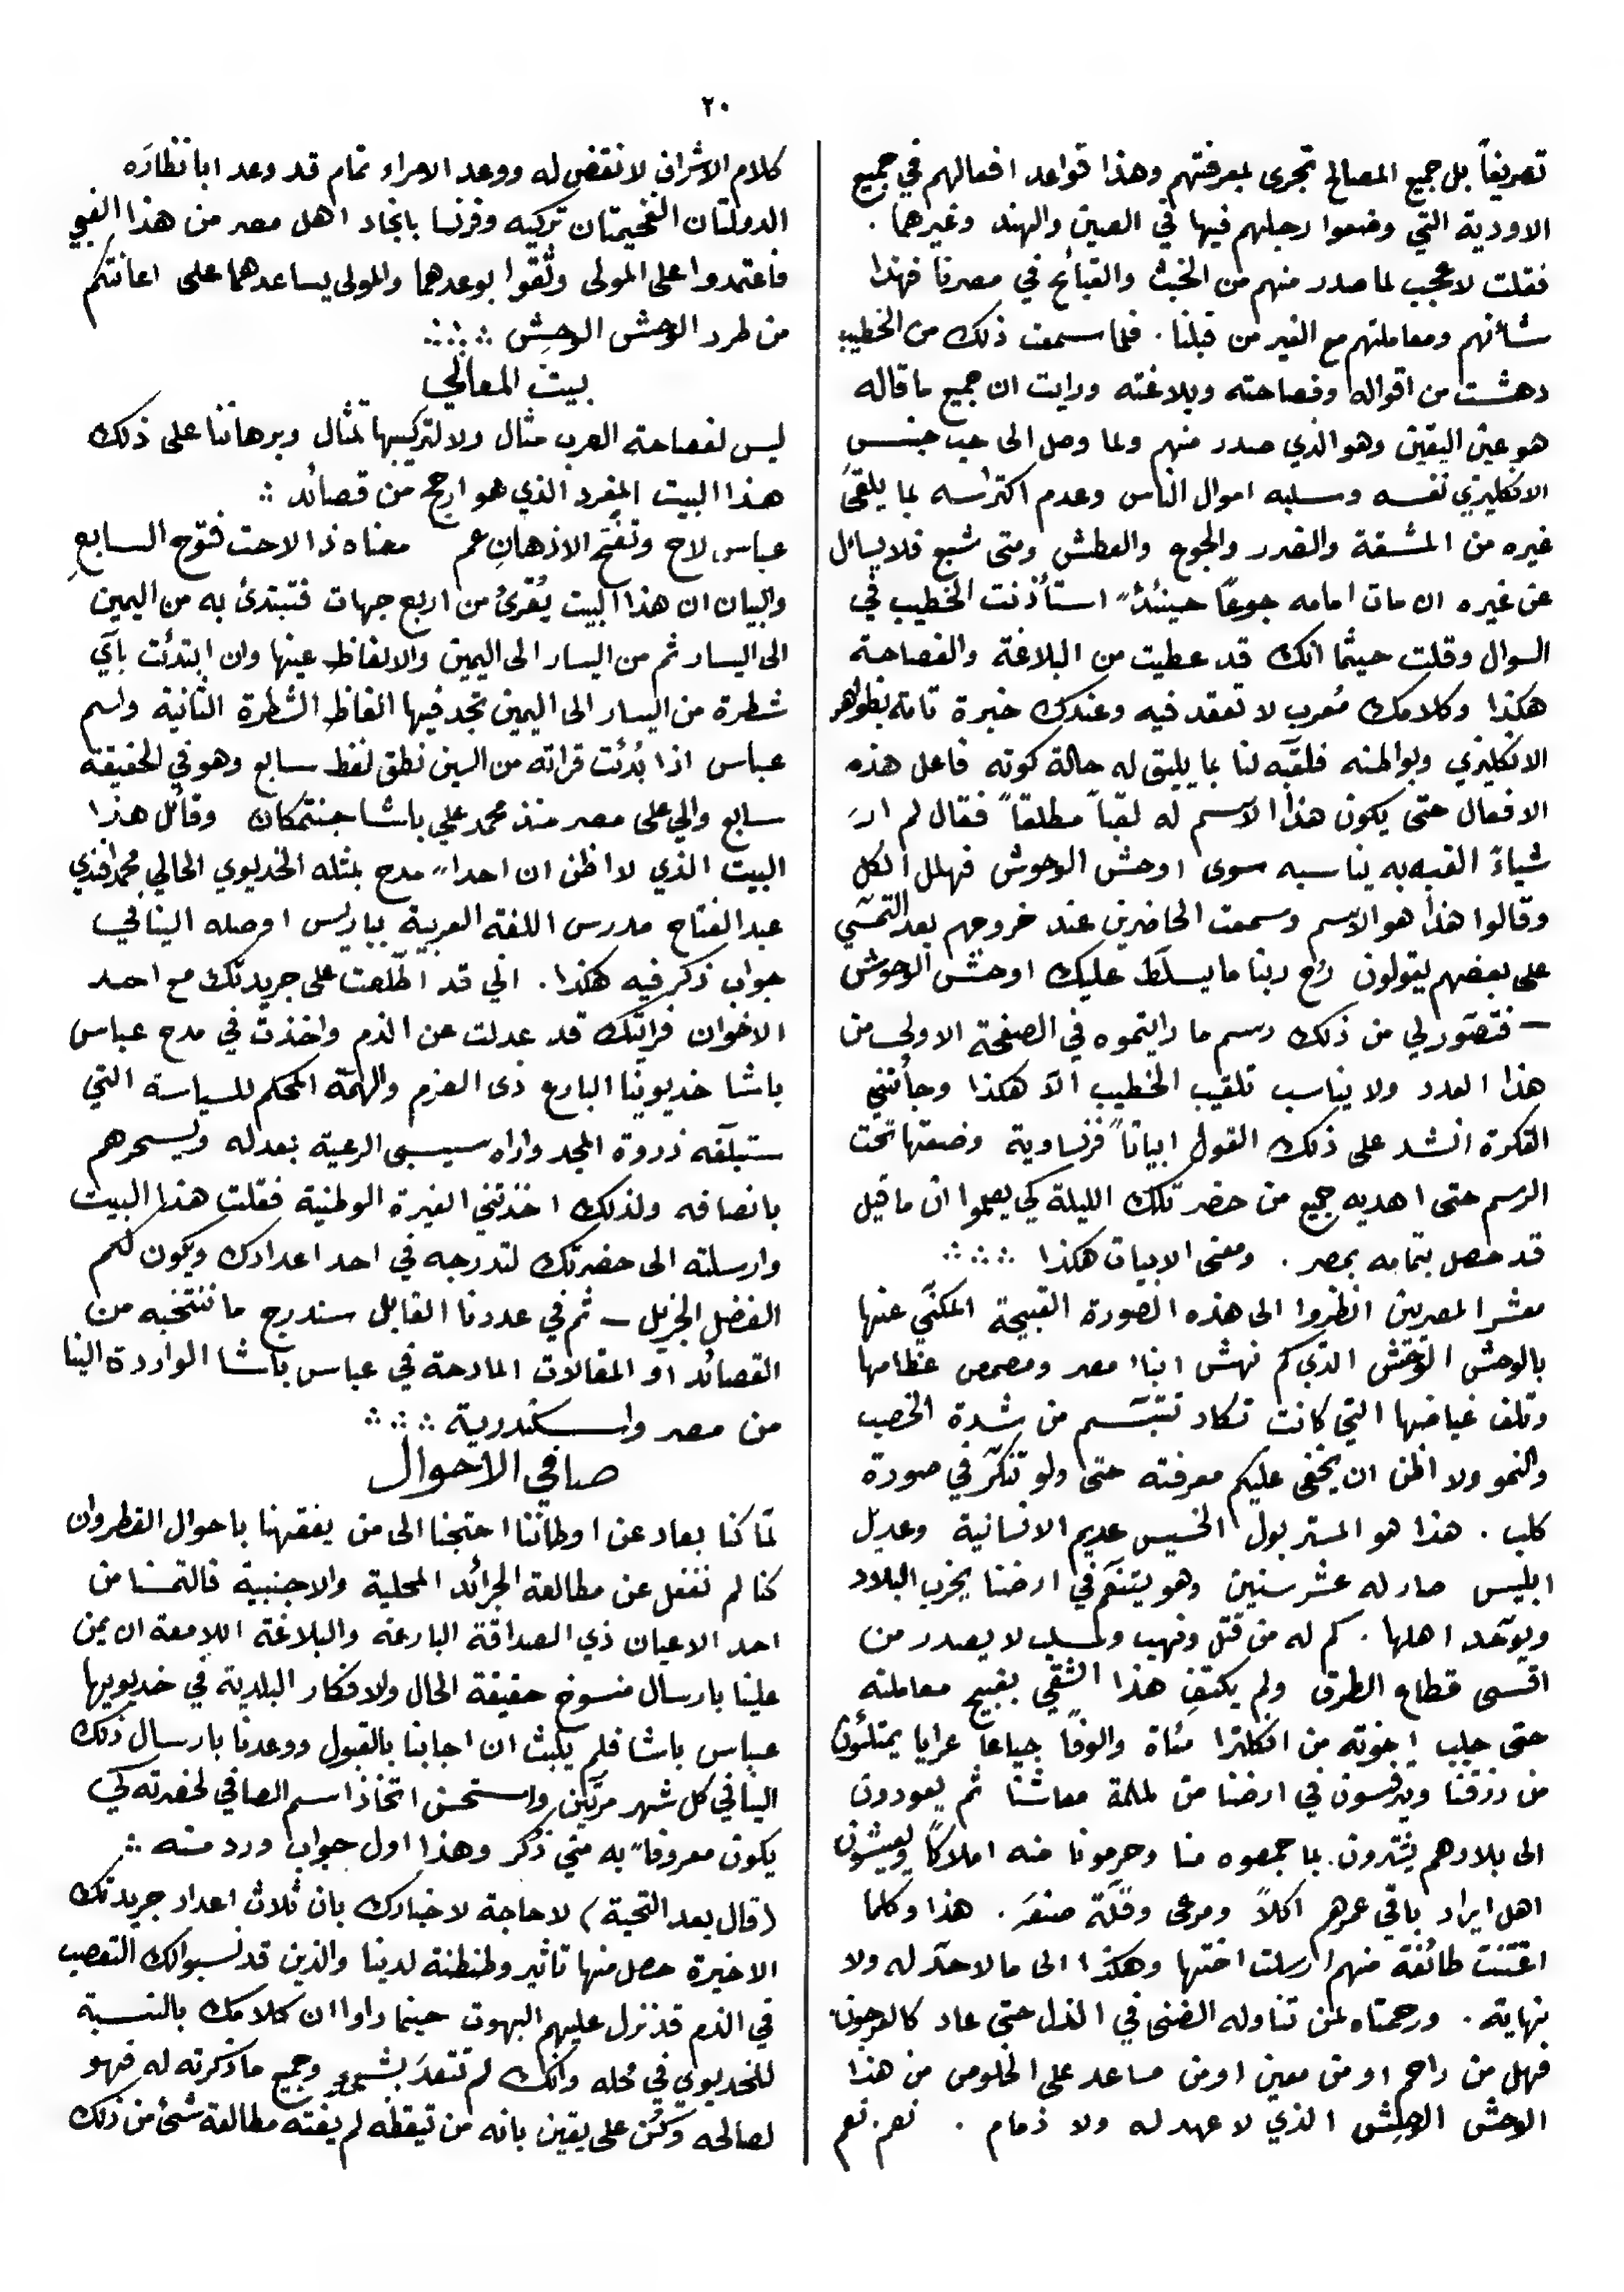 ٢٠
تصريفاً بل جميع المصالح تجرى بمعرفتهم وهذا قواعد افعالهم في جميع
الاودية التي وضعوا رجلهم فيها في الصين والهند وغيرهما .
فقلت لا عجب لما صدر منهم من الخبث والقبائح في مصرنا فهذا
شأنهم ومعاملتهم مع الغير من قبلنا . فلما سمعت ذلك من الخطيب
دهشت من اقواله وفصاحته وبلاغته ورايت ان جميع ما قاله
هو عين اليقين وهو الذي صدر منهم ولما وصل الى حب جنس
الانكليزي نفسه وسلبه اموال الناس وعدم اكتراسه بما يلقىَ
غيره من المشقة والضرر والجوع والعطش ومتى شبع فلا يسائل
عن غيره ان مات امامه جوعًا حينئذٍ استأذنت الخطيب في
السوال وقلت حيثما انك قد عطيت من البلاغة والفصاحة
هكذا وكلامك مُعرب لا تعقد فيه وعندك خبرة تامة بظواهر
الانكليزي وبواطنه فلقّبه لنا بما يليق له حالة كونه فاعل هذه
الافعال حتى يكون هذا الاسم له لقباً مطلقاً فقال لم ارَ
شياءً القبه به يناسبه سوى اوحش الوحوش فهلل الكل
وقالوا هذا هو الاسم وسمعت الحاضرين عند خروجهم بعد التمسّي
على بعضهم يقولون رُح ربنا ما يسلّط عليك اوحش الوحوش
— فتصّور لي من ذلك رسم ما رايتموه في الصفحة الاولى من
هذا العدد ولا يناسب تلقيب الخطيب الّا هكذا وجأتني
الفكرة انشد على ذلك القول ابياتاً فرنساوية وضعتها تحت
الرسم حتى اهديه جميع من حضر تلك الليلة كي يعلموا ان ما قيل
قد حصل بتمامه بمصر . ومعنى الابيات هكذا ∴∴
معشر المصريين انظروا الى هذه الصورة القبيحة المكنّي عنها
بالوحش الوحش الذي كم نهش ابناء مصر ومصمص عظامها
وتلف غياضها التي كانت تكاد تتبّسم من شدة الخصب
والنمو ولا اظن ان يخفى عليكم معرفته حتى ولو تنكّر في صورة
كلب . هذا هو المستر بول الخسيس عديم الانسانية وعديل
ابليس صار له عشر سنين وهو يتنعّم في ارضنا يخرب البلاد
ويوّعد اهلها . كم له من قتل ونهب وسلب لا يصدر من
اقسى قطاع الطرق ولم يكتفِ هذا الشقي بقبيح معاملته
حتى جلب إخوته من انكلترا مئاة والوفًا جياعاً عرايا يمتلئون
من رزقنا ويرفسون في ارضنا من لملمة معاشنا ثم يعودون
الى بلادهم يشترون بما جمعوه منا وحرمونا منه املاكاً ويعيشون
اهل ايراد باقي عمرهم اكلاً ومرعى وقلّة صنعَ . هذا وكلما
اغتنت طائفة منهم ارسلت اختها وهكذا الى ما لا حدّ له ولا
نهاية . ورحمتاه لمن تناوله الضنى في الذل حتى عاد كالعرجون
فهل من راحم او من معين او من مساعد على الخلوص من هذا
الوحش الوحِش الذي لا عهد له ولا ذمام . نعم . نعم
كلام الاشراف لا نقض له ووعد الامراء تمام قد وعد ابا نظاره
الدولتان الفخيمتان تركيه وفرنسا بانجاد اهل مصر من هذا الغبي
فاعتمدوا على المولى وثقوا بوعدهما والمولى يساعدهما على اعانتكم
من طرد الوحش الوحِش ∴∴
بيت المعالي
ليس لفصاحة العرب مثال ولا لتركيبها تمثال وبرهاننا على ذلك
هذا البيت المفرد الذي هو ارجح من قصائد ∴
عباس لاح وتفتح الاذهان عم معناه ذا الاحت فتوح السابعِ
والبيان ان هذا البيت يُقرئ من اربع جهات فتبتدئ به من اليمين
الى اليسار ثم من اليسار الى اليمين والالفاظ عينها وان ابتدئت بآي
شطرة من اليسار الى اليمين تجد فيها الفاظ الشطرة الثانية واسم
عباس اذا بُدئت قراته من السين نطق لفظ سابع وهو في الحقيقة
سابع والي على مصر منذ محمد علي باشا جنتمكان وقائل هذا
البيت الذي لا اظن ان احداً مدح بمثله الخديوي الحالي محمد افندي
عبد الفتاح مدرس اللغة العربية بباريس اوصله الينا في
جواب ذكر فيه هكذا . اني قد اطّلعت على جريدتك مع احد
الاخوان فراتك قد عدلت عن الذم واخذت في مدح عباس
باشا خديوينا البارع ذى العزم والهمّة المحكم للسياسة التي
ستبلّغه ذروة المجد واراه سيسبى الرعية بعدله ويسحرهم
بانصافه ولذلك اخذتني الغيرة الوطنية فقلت هذا البيت
وارسلته الى حضرتك لتدرجه في احد اعدادك ويكون لكم
الفضل الجزيل — ثم في عددنا القابل سندرج ما ننتخبه من
القصائد او المقالات المادحة في عباس باشا الواردة الينا
من مصر واسكندرية ∴∴
صافي الاحوال
لمّا كنا بعاد عن اوطاننا احتجنا الى من يفقهنا باحوال القطر وان
كنا لم نغفل عن مطالعة الجرائد المحلية والاجنبية فالتمسنا من
احد الاعيان ذي الصداقة البارعة والبلاغة اللامعة ان يمن
علينا بارسال منسوخ حقيقة الحال والافكار البلدية في خديويها
عباس باشا فلم يلبث ان اجابنا بالقبول ووعدنا بارسال ذلك
الينا في كل شهر مرّتين واستحسن اتخاذ اسم الصافي لحضرته كي
يكون معروفاً به متي ذُكر وهذا اول جواب ورد منه ∴
(قال بعد التحية) لا حاجة لاخبارك بان ثلاث اعداد جريدتك
الاخيرة حصل منها تاثير وطنطنة لدينا والذين قد نسبوا لك التعصب
في الذم قد نزل عليهم البهوت حينما راوا ان كلامك بالنسبة
للخديوي في محله وانك لم تتعدَ بشيءٍ وجميع ما ذكرته له فهو
لصالحه وكُن على يقين بانه من تيقظه لم يفته مطالعة شئ من ذلك